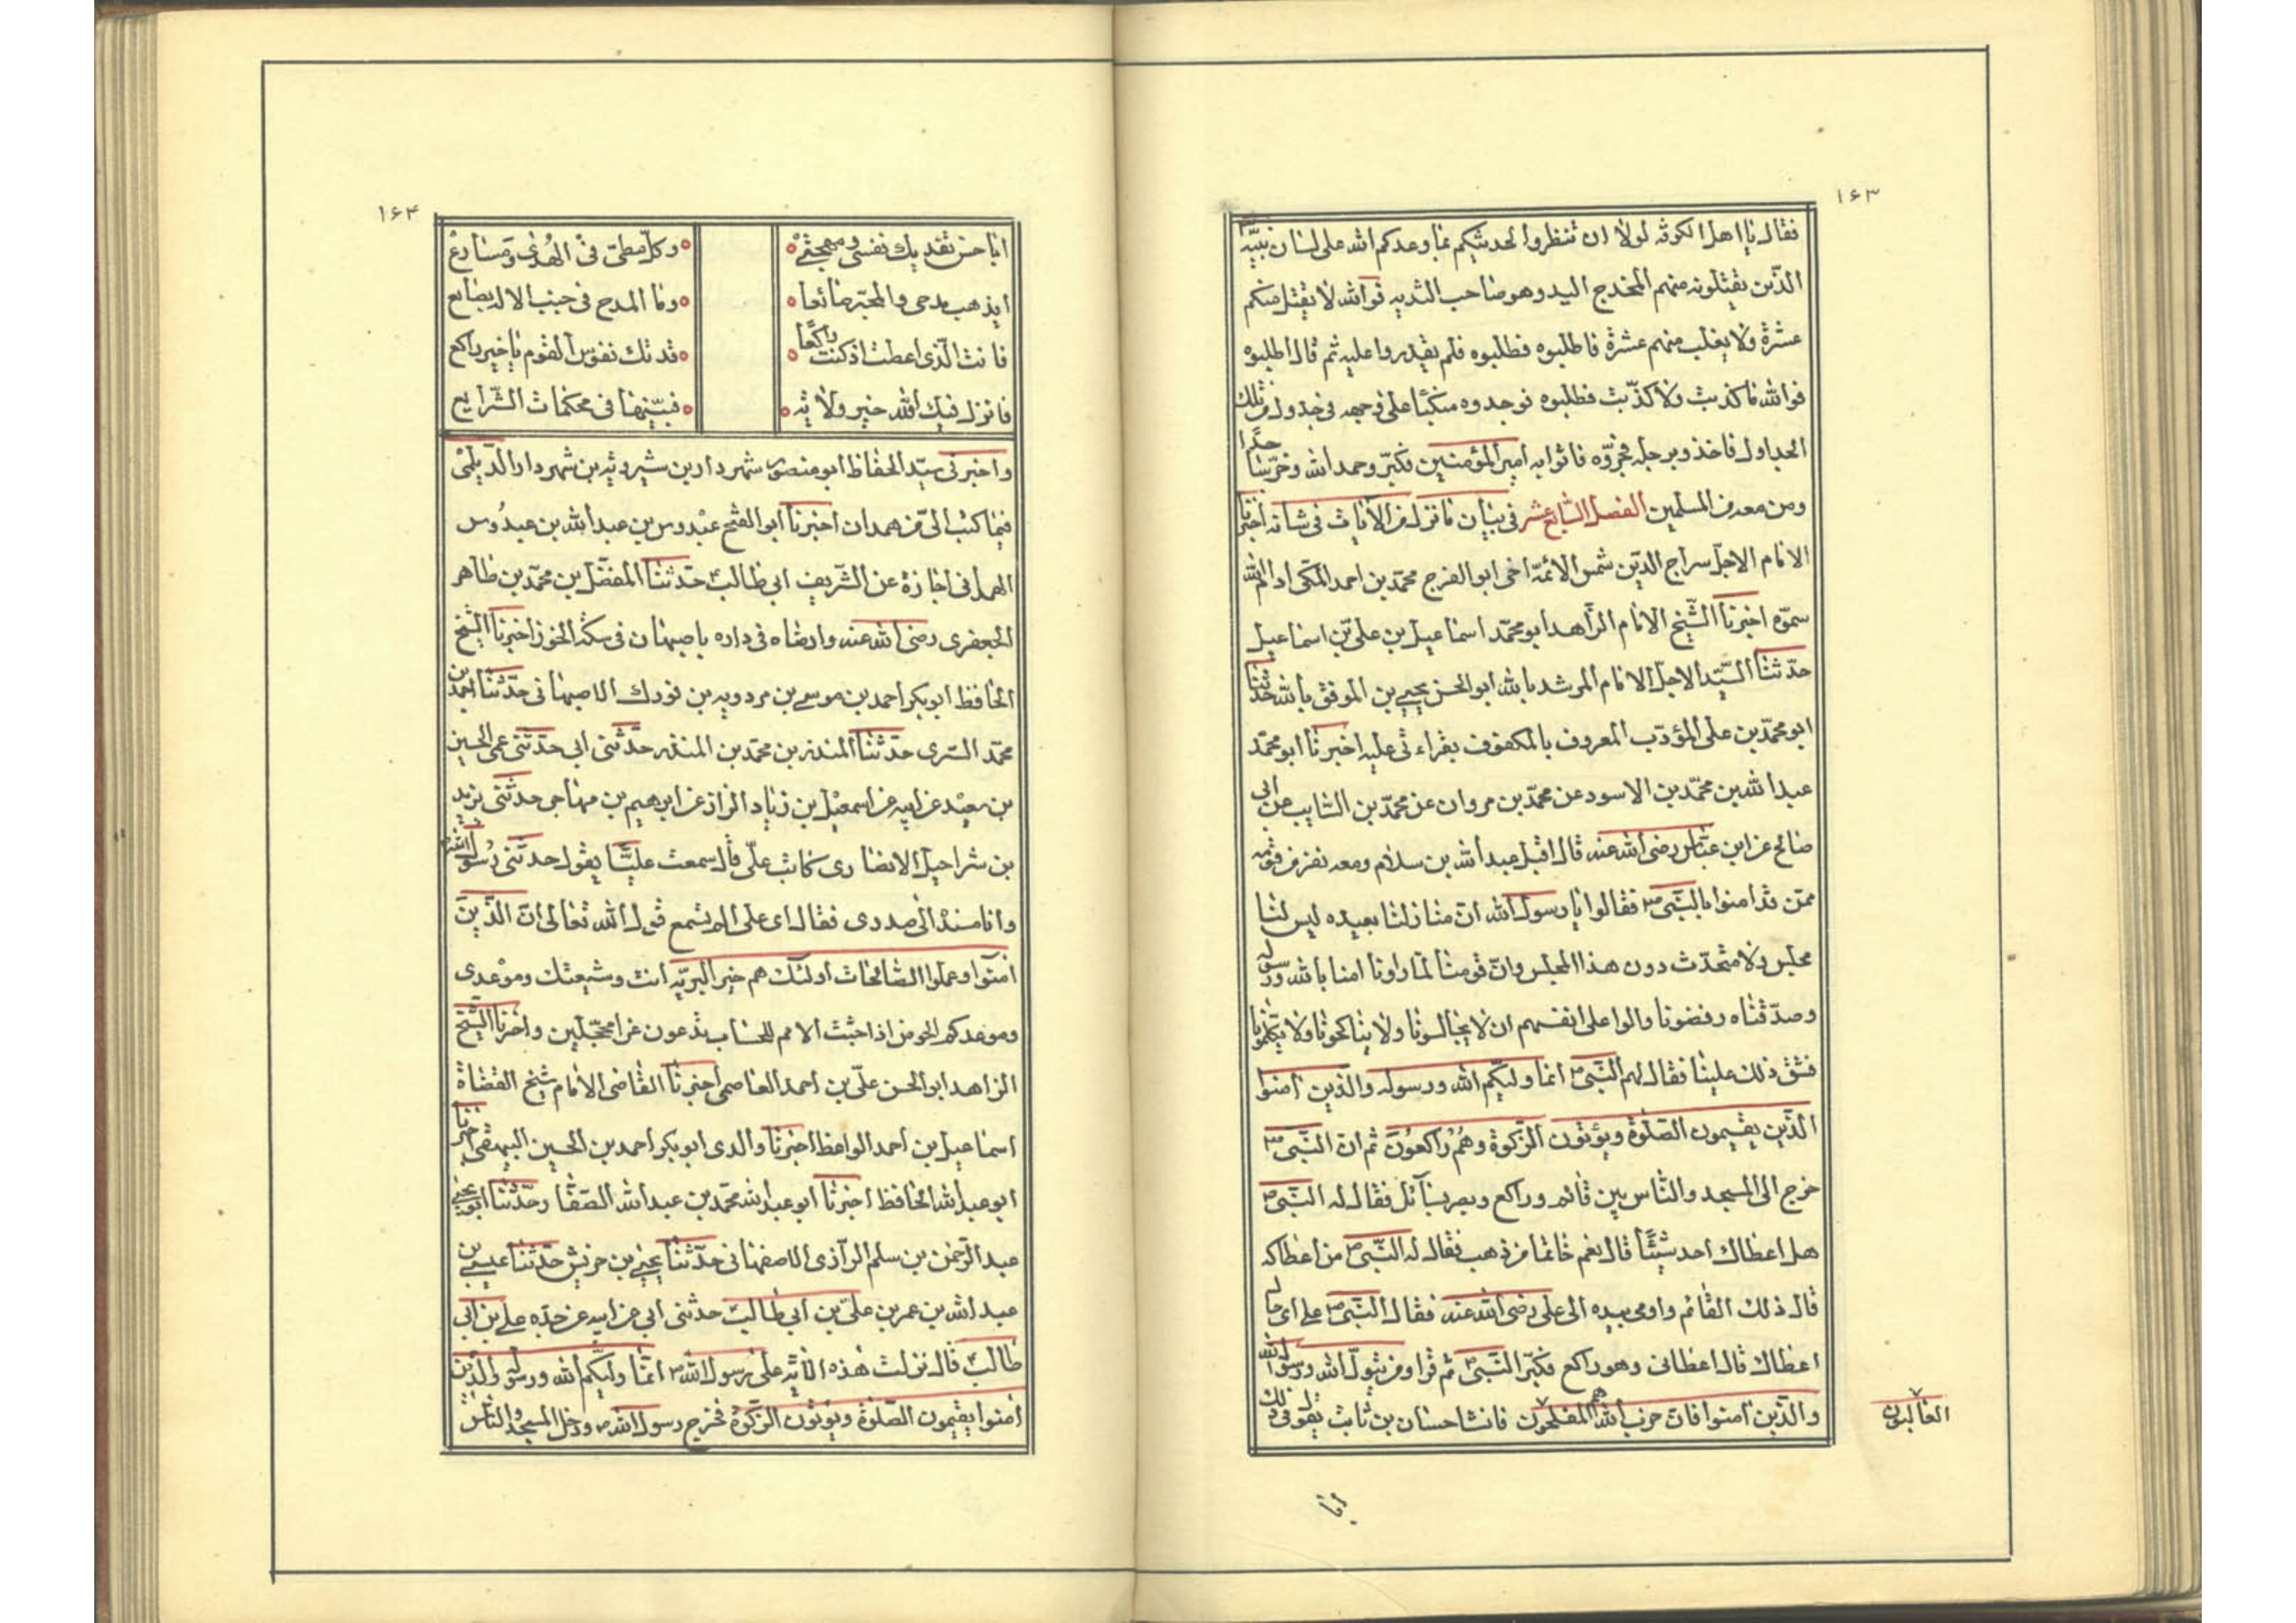 ١۶٣
فقال يا اهل الكوفه لولا ان تنظروا لحدثتكم بما وعدكم الله على لسان نبيّه
الذين يقتلونه منهم المخدج اليد وهو صاحب الثديه فوالله لا يقتل منكم
عشرة ولا يغلب منهم عشرة فاطلبوه فطلبوه فلم يقدروا عليه ثم قال اطلبوه
فوالله ما كذبت ولا كذّبت فطلبوه فوجدوه منكبّا على وجهه فى جدول من تلك
الجداول فاخذوبرجله فجرّوه فاتوا به امير المؤمنين فكبّر وحمد الله وخرّ ساجدا
ومن معه من المسلمين الفصل السّابع عشر فى بيان ما نزل من الآيات فى شانه اخبرنا
الامام الاجلّ سراج الدّين شمس الائمّة اخى ابو الفرج محمّد بن احمد المكى ادام الله
سموّه اخبرنا الشّيخ الامام الزّاهد ابو محمّد اسماعيل بن على بن اسماعيل
حدّثنا السّيّد الاجلّ الامام المرشد بالله ابو الحسن يحيى بن الموفق بالله حدّثنا
ابو محمّد بن على المؤدّب المعروف بالمكفوف بقراءتى عليه اخبرنا ابو محمّد
عبد الله بن محمّد بن الاسود عن محمّد بن مروان عن محمّد بن السّايب عن ابى
صالح عن ابن عبّاس رضى الله عنه قال اقبل عبد الله بن سلام ومعه نفر من قومه
ممّن قد امنوا بالنّبىّ ص فقالوا يا رسول الله انّ منازلنا بعيده ليس لنا
مجلس ولا متحدّث دون هذا المجلس وانّ قومنا لمّا راونا امنا بالله ورسوله
وصدّقناه رفضونا والوا على انفسهم ان لا يجالسونا ولا يناكحونا ولا يكلّمونا
فشقّ ذلك علينا فقال لهم النّبىّ ص انما وليّكم الله ورسوله والّذين آمنوا
الّذين يقيمون الصّلوة ويؤتون الزّكوة وهُم راكعُون ثم ان النّبىّ ص
خرج الى المسجد والنّاس بين قائم وراكع وبصر بسآئل فقال له النّبىّ ص
هل اعطاك احد شيئًا قال نعم خاتما من ذهب فقال له النّبىّ ص من اعطاكه
قال ذلك القائم واومى بيده الى على رضى الله عنه فقال النّبىّ ص على اى حال
اعطاك قال اعطانى وهو راكع فكبّر النّبىّ ص ثم قرا ومن يتولّ الله ورسوله
والّذين آمنوا فان حزب الله هم المفلحون فانشا حسان بن ثابت يقول فى ذلك
الغالبون
١۶۴
ابا حسن تفديك نفسى ومهجتى وكلّ بطىّ فى الهُدى ومسارع
ايذهب مدحى والمحبّر ضائعا وما المدح فى جنب الاله بضايع
فانت الّذى اعطيت اذ كنت راكعًا فدتك نفوس القوم يا خير راكع
فانزل فيك الله خير ولايه فبيّنها فى محكمات الشّرايع
واخبرنى سيّد الحفاظ ابو منصور شهردار بن شيرويه بن شهردار الدّيلمىّ
فيما كتب الىّ من همدان اخبرنا ابو الفتح عبدوس بن عبد الله بن عبدُوس
الهمدانى اجازة عن الشّريف ابى طالب حدّثنا المفضّل بن محمّد بن طاهر
الجعفرى رضى الله عنه وارضاه فى داره باصبهان فى سكّة الخوز اخبرنا الشّيخ
الحافظ ابو بكر احمد بن موسى بن مردويه بن فورك الاصبهانى حدّثنا احمد بن
محمّد السّرى حدّثنا المنذر بن محمّد بن المنذر حدّثنى ابى حدّثنى عمى الحسين
بن سعيد عن ابيه عن اسمعيل بن زياد البزاز عن ابرهيم بن مهاجر حدّثنى يزيد
بن شراحيل الانصارى كاتب علىّ قال سمعت عليّا يقول حدّثنى رسول الله ص
وانا مسنده الى صدرى فقال اى على الم تسمع قول الله تعالى انّ الّذين
آمنوا وعملوا الصّالحات اولئك هم خير البريّه انت وشيعتك وموعدى
وموعدكم الحوض اذا جئت الامم للحساب تدعون غرا محجّلين واخبرنا الشّيخ
الزاهد ابو الحسن علىّ بن احمد العاصمى اخبرنا القاضى الامام شيخ القضاة
اسماعيل بن احمد الواعظ اخبرنا والدى ابو بكر احمد بن الحسين البيهقى اخبرنا
ابو عبد الله الحافظ اخبرنا ابو عبد الله محمّد بن عبد الله الصّفار حدّثنا ابو يحيى
عبد الرّحمن بن سلم الرآزى الاصفهانى حدّثنا يحيى بن حريش حدّثنا عيسى بن
عبد الله بن عمر بن علىّ بن ابى طالب حدثنى ابى عن ابيه عن جدّه على بن ابى
طالب قال نزلت هذه الآيه على رسول الله ص انّما وليّكم الله ورسوله والّذين
آمنوا يقيمون الصّلوة ويؤتون الزّكوة فخرج رسول الله ص ودخل المسجد والنّاس